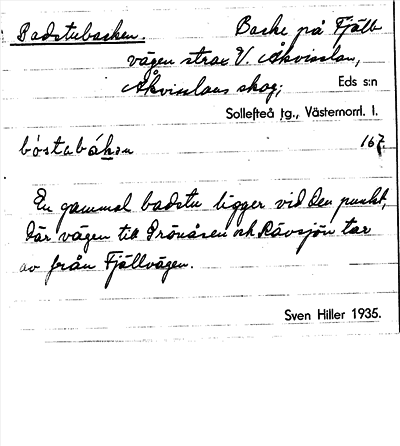 Badstubacken. Backe på Fjäll-
vägen strax V. Åkvisslan,
Åkvisslans skog; Eds s:n
Sollefteå tg., Västernorrl. l.
167
En gammal badstu ligger vid den punkt,
där vägen till Grönåsen och Rävsjön tar
av från Fjällvägen.
Sven Hiller 1935.